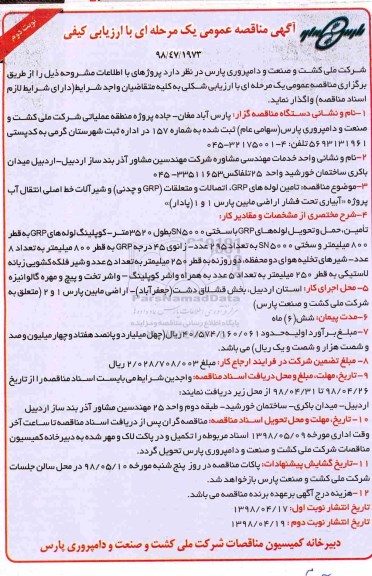 نوبت دوم
آگهی مناقصه عمومی یک مرحله ای با ارزیابی کیفی
۹۸/۴۷/۱۹۷۳
شرکت ملی کشت و صنعت و دامپروری پارس در نظر دارد پروژهای با اطلاعات مشروحه ذیل را از طریق
برگزاری مناقصه عمومی یک مرحله ای با ارزیابی شکلی به کلیه متقاضیان واجد شرایط (دارای شرایط لازم
اسناد مناقصه) واگذار نماید.
۱-نام و نشانی دستگاه مناقصه گزار: پارس آباد مغان- جاده پروژه منطقه عملیاتی شرکت ملی کشت و
صنعت و دامپروری پارس(سهامی عام) ثبت شده به شماره ۱۵۷ در اداره ثبت شهرستان گرمی به کدپستی
۵۶۹۳۱۳۱۹۶۱ تلفن: ۴-۳۲۱۷۵۰۰۱-۰۴۵
۲-نام و نشانی واحد خدمات مهندسی مشاوره شرکت مهندسین مشاور آذر بند ساز اردبیل-اردبیل میدان
باکری ساختمان خورشید واحد ۲۵ تلفاکس ۳۳۵۱۱۶۵۳-۰۴۵
۳-موضوع مناقصه: تامین لوله های GRP، اتصالات و متعلقات (GRP و چدنی) و شیرآلات خط اصلی انتقال آب
پروژه «آبیاری تحت فشار اراضی مابین پارس ۱ و ۲ (پاداد)»
۴-شرح مختصری از مشخصات و مقادیر کار:
تأمین، حمل و تحویل لوله های GRP با سختی SN5000 بطول ۳۵۲۰ متر- کوپلینگ لوله های GRP به قطر
۸۰۰ میلیمتر و سختی SN5000 به تعداد ۲۹۵ عدد- زانوی ۴۵ درجه GRP به قطر ۸۰۰ میلیمتر به تعداد ۸
عدد- شیرهای تخلیه هوای دو محفظه، دو روزنه به قطر ۲۵۰ میلیمتر به تعداد ۵ عدد و شیر فلکه کشویی زبانه
لاستیکی به قطر ۲۵۰ میلیمتر به تعداد ۵ عدد به همراه واشر کوپلینگ - واشر تخت و پیچ و مهره گالوانیزه
۵-محل اجرای کار: استان اردبیل، بخش قشلاق دشت(جعفرآباد)- اراضی مابین پارس ۱ و ۲ (متعلق به
شرکت ملی کشت و صنعت پارس)
۶-مدت پیمان: شش(۶) ماه
۷-مبلغ برآورد اولیه:حدود ۴۰/۵۷۴/۱۶۰/۰۶۱ ریال(چهل میلیارد و پانصد هفتاد و چهار میلیون و صد
و شصت هزار و شصت و یک ریال) می باشد.
۸- مبلغ تضمین شرکت در فرایند ارجاع کار: مبلغ ۲/۰۲۸/۷۰۸/۰۰۳ ریال
۹-تاریخ، مهلت، مبلغ و محل دریافت اسناد مناقصه: واجدین شرایط می بایست اسناد مناقصه را از تاریخ
۹۸/۰۴/۲۶ تا ۹۸/۰۴/۳۱ از محل زیر دریافت نمایند:
اردبیل- میدان باکری- ساختمان خورشید- طبقه دوم واحد ۲۵ مهندسین مشاور آذر بند ساز اردبیل
۱۰-تاریخ، مهلت و محل تحویل اسناد مناقصه: مناقصه گران پس از دریافت اسناد مناقصه تا ساعت آخر
وقت اداری مورخه ۱۳۹۸/۰۵/۰۹ اسناد مربوطه را تکمیل و در پاکت لاک و مهر شده به دبیرخانه کمیسیون
مناقصات شرکت ملی کشت و صنعت و دامپروری پارس تحویل گردد.
۱۱-تاریخ گشایش پیشنهادات: پاکات مناقصه در روز پنج شنبه مورخه ۹۸/۰۵/۱۰ در محل سالن جلسات
شرکت ملی کشت و صنعت پارس بازخواهد شد.
۱۲-هزینه درج آگهی برعهده برنده مناقصه می باشد.
تاریخ انتشار نوبت اول: ۱۳۹۸/۰۴/۱۷
تاریخ انتشار نوبت دوم : ۱۳۹۸/۰۴/۱۹
دبیرخانه کمیسیون مناقصات شرکت ملی کشت و صنعت و دامپروری پارس